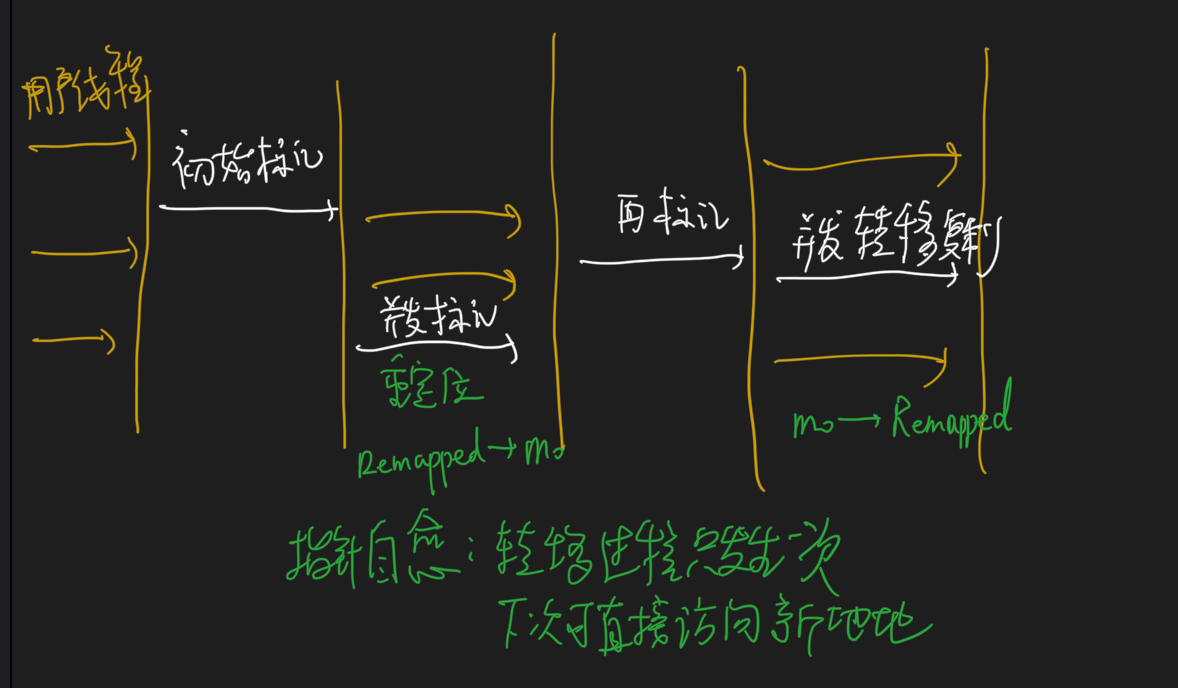 用户线程
初始标记
并发标记
重定位
Remapped → m0
再标记
并发转移复制
m0 → Remapped
指针自愈：转移过程只发生一次
下次可直接访问新地址